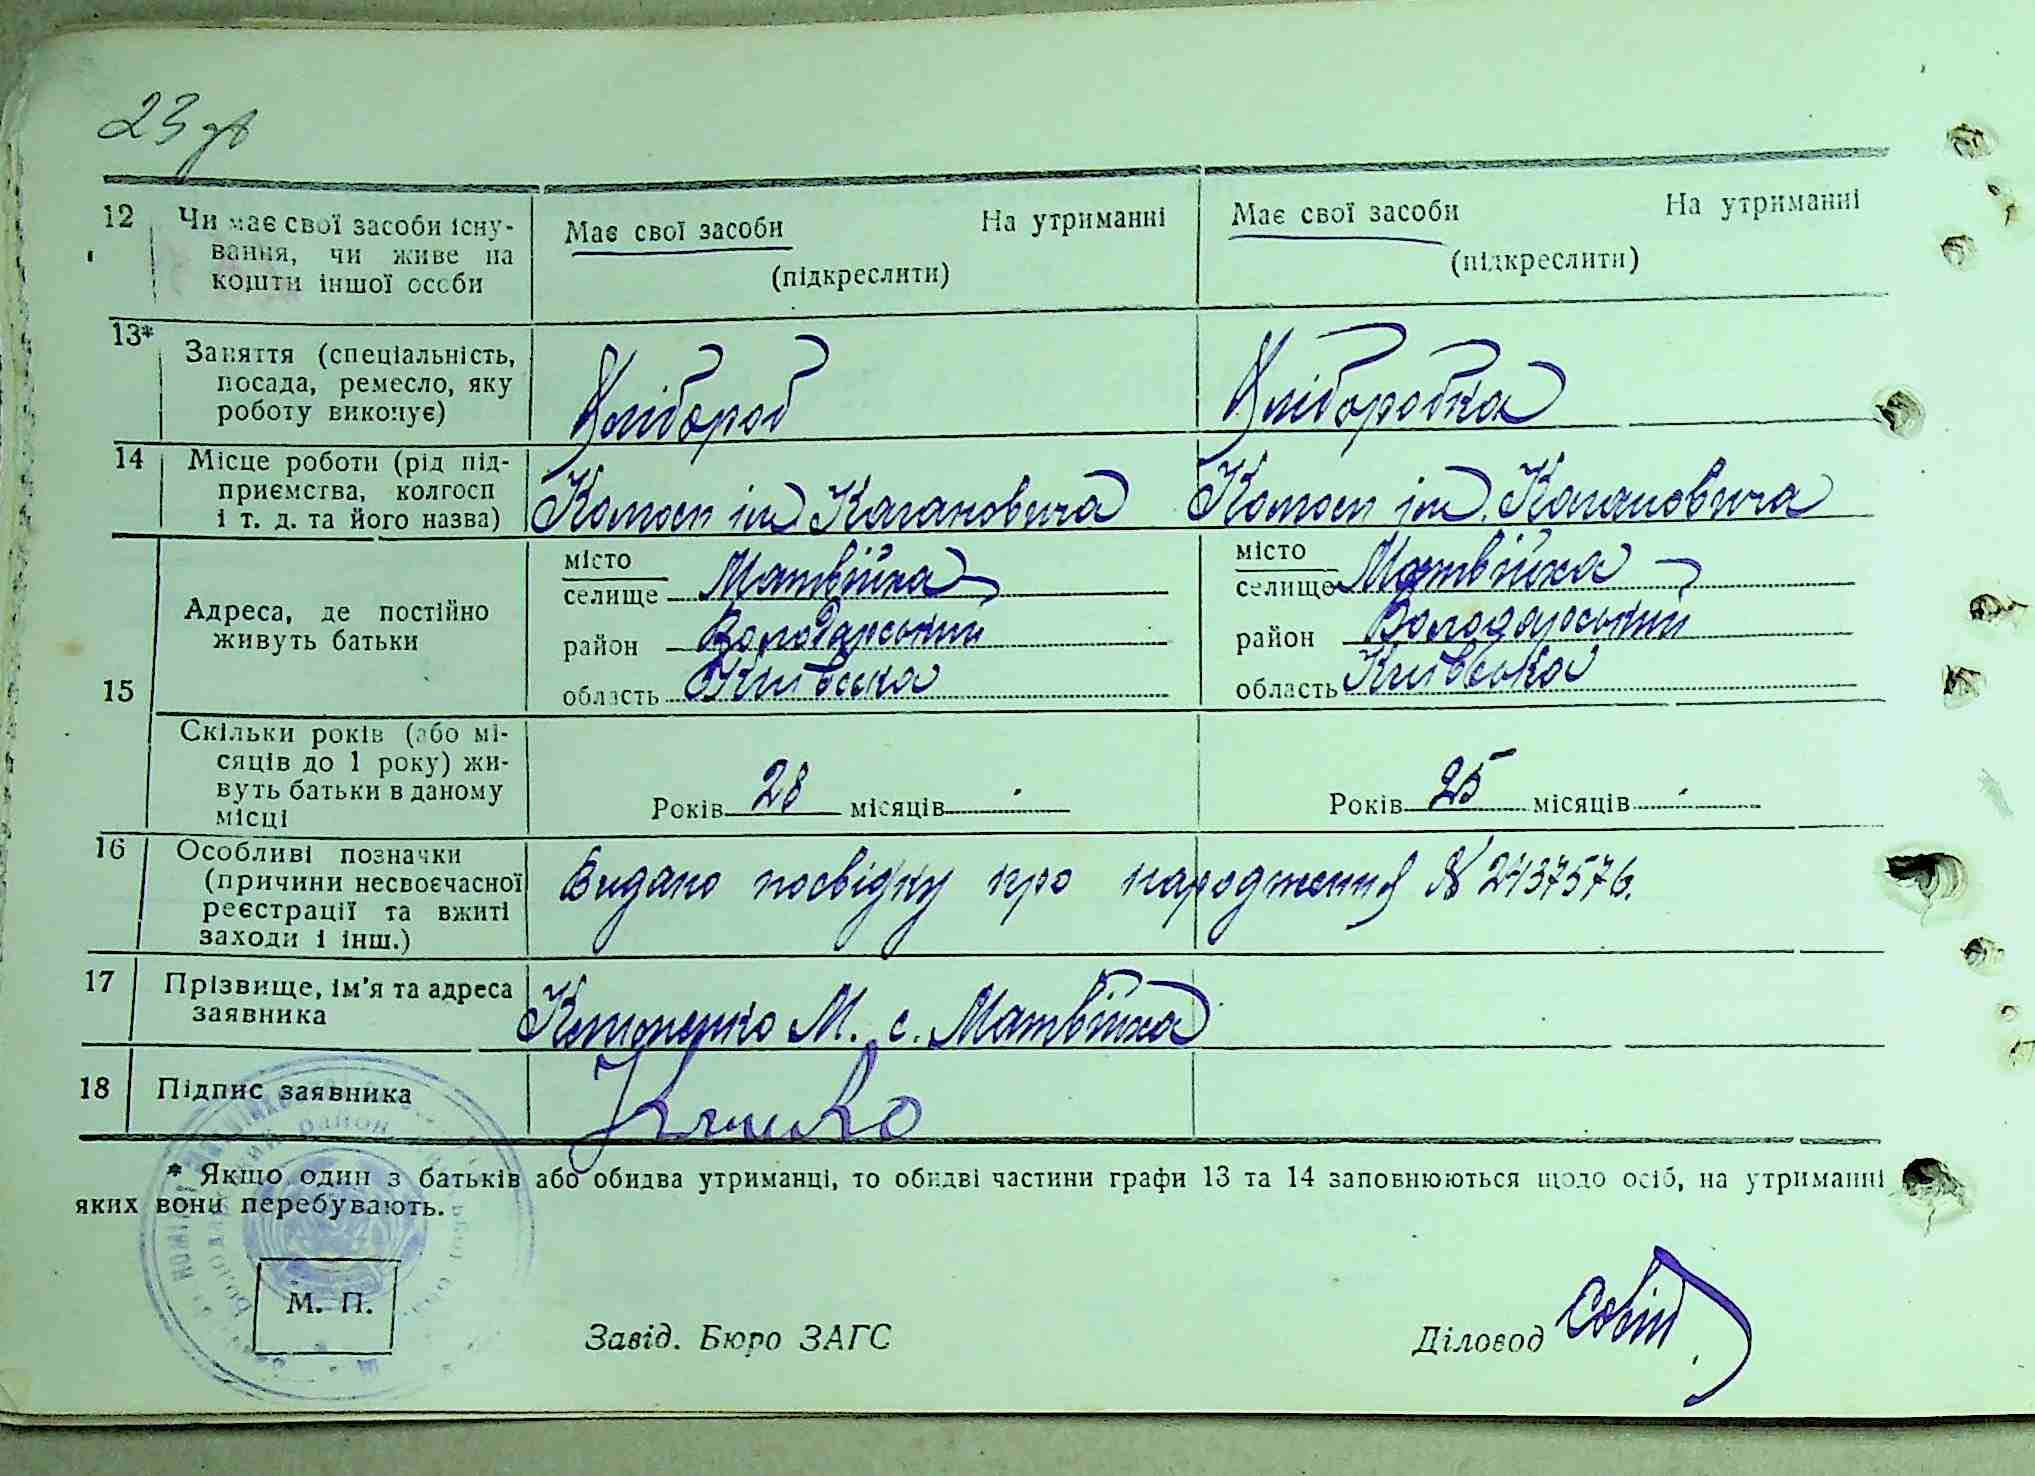 23 зв
12 Чи має свої засоби існу- Має свої засоби На утриманні Має свої засоби На утриманні
вання, чи живе на (підкреслити) (підкреслити)
кошти іншої особи
13* Заняття (спеціальність,
посада, ремесло, яку Хлібороб Хліборобка
роботу виконує)
14 Місце роботи (рід під-
приємства, колгосп Колгосп ім. Кагановича Колгосп ім. Кагановича
і т. д. та його назва)
15 Адреса, де постійно
живуть батьки
місто
селище Матвійха
район Володарський
область Київська
місто
селище Матвійха
район Володарський
область Київська
Скільки років (або мі-
сяців до 1 року) жи-
вуть батьки в даному
місці
Років 28 місяців Років 25 місяців
16 Особливі позначки
(причини несвоєчасної
реєстрації та вжиті
заходи і інш.)
Видано посвідку про народження № 2437576.
17 Прізвище, ім'я та адреса
заявника
М. с. Матвійха
18 Підпис заявника
* Якщо один з батьків або обидва утриманці, то обидві частини графи 13 та 14 заповнюються щодо осіб, на утриманні
яких вони перебувають.
М. П.
Завід. Бюро ЗАГС Діловод